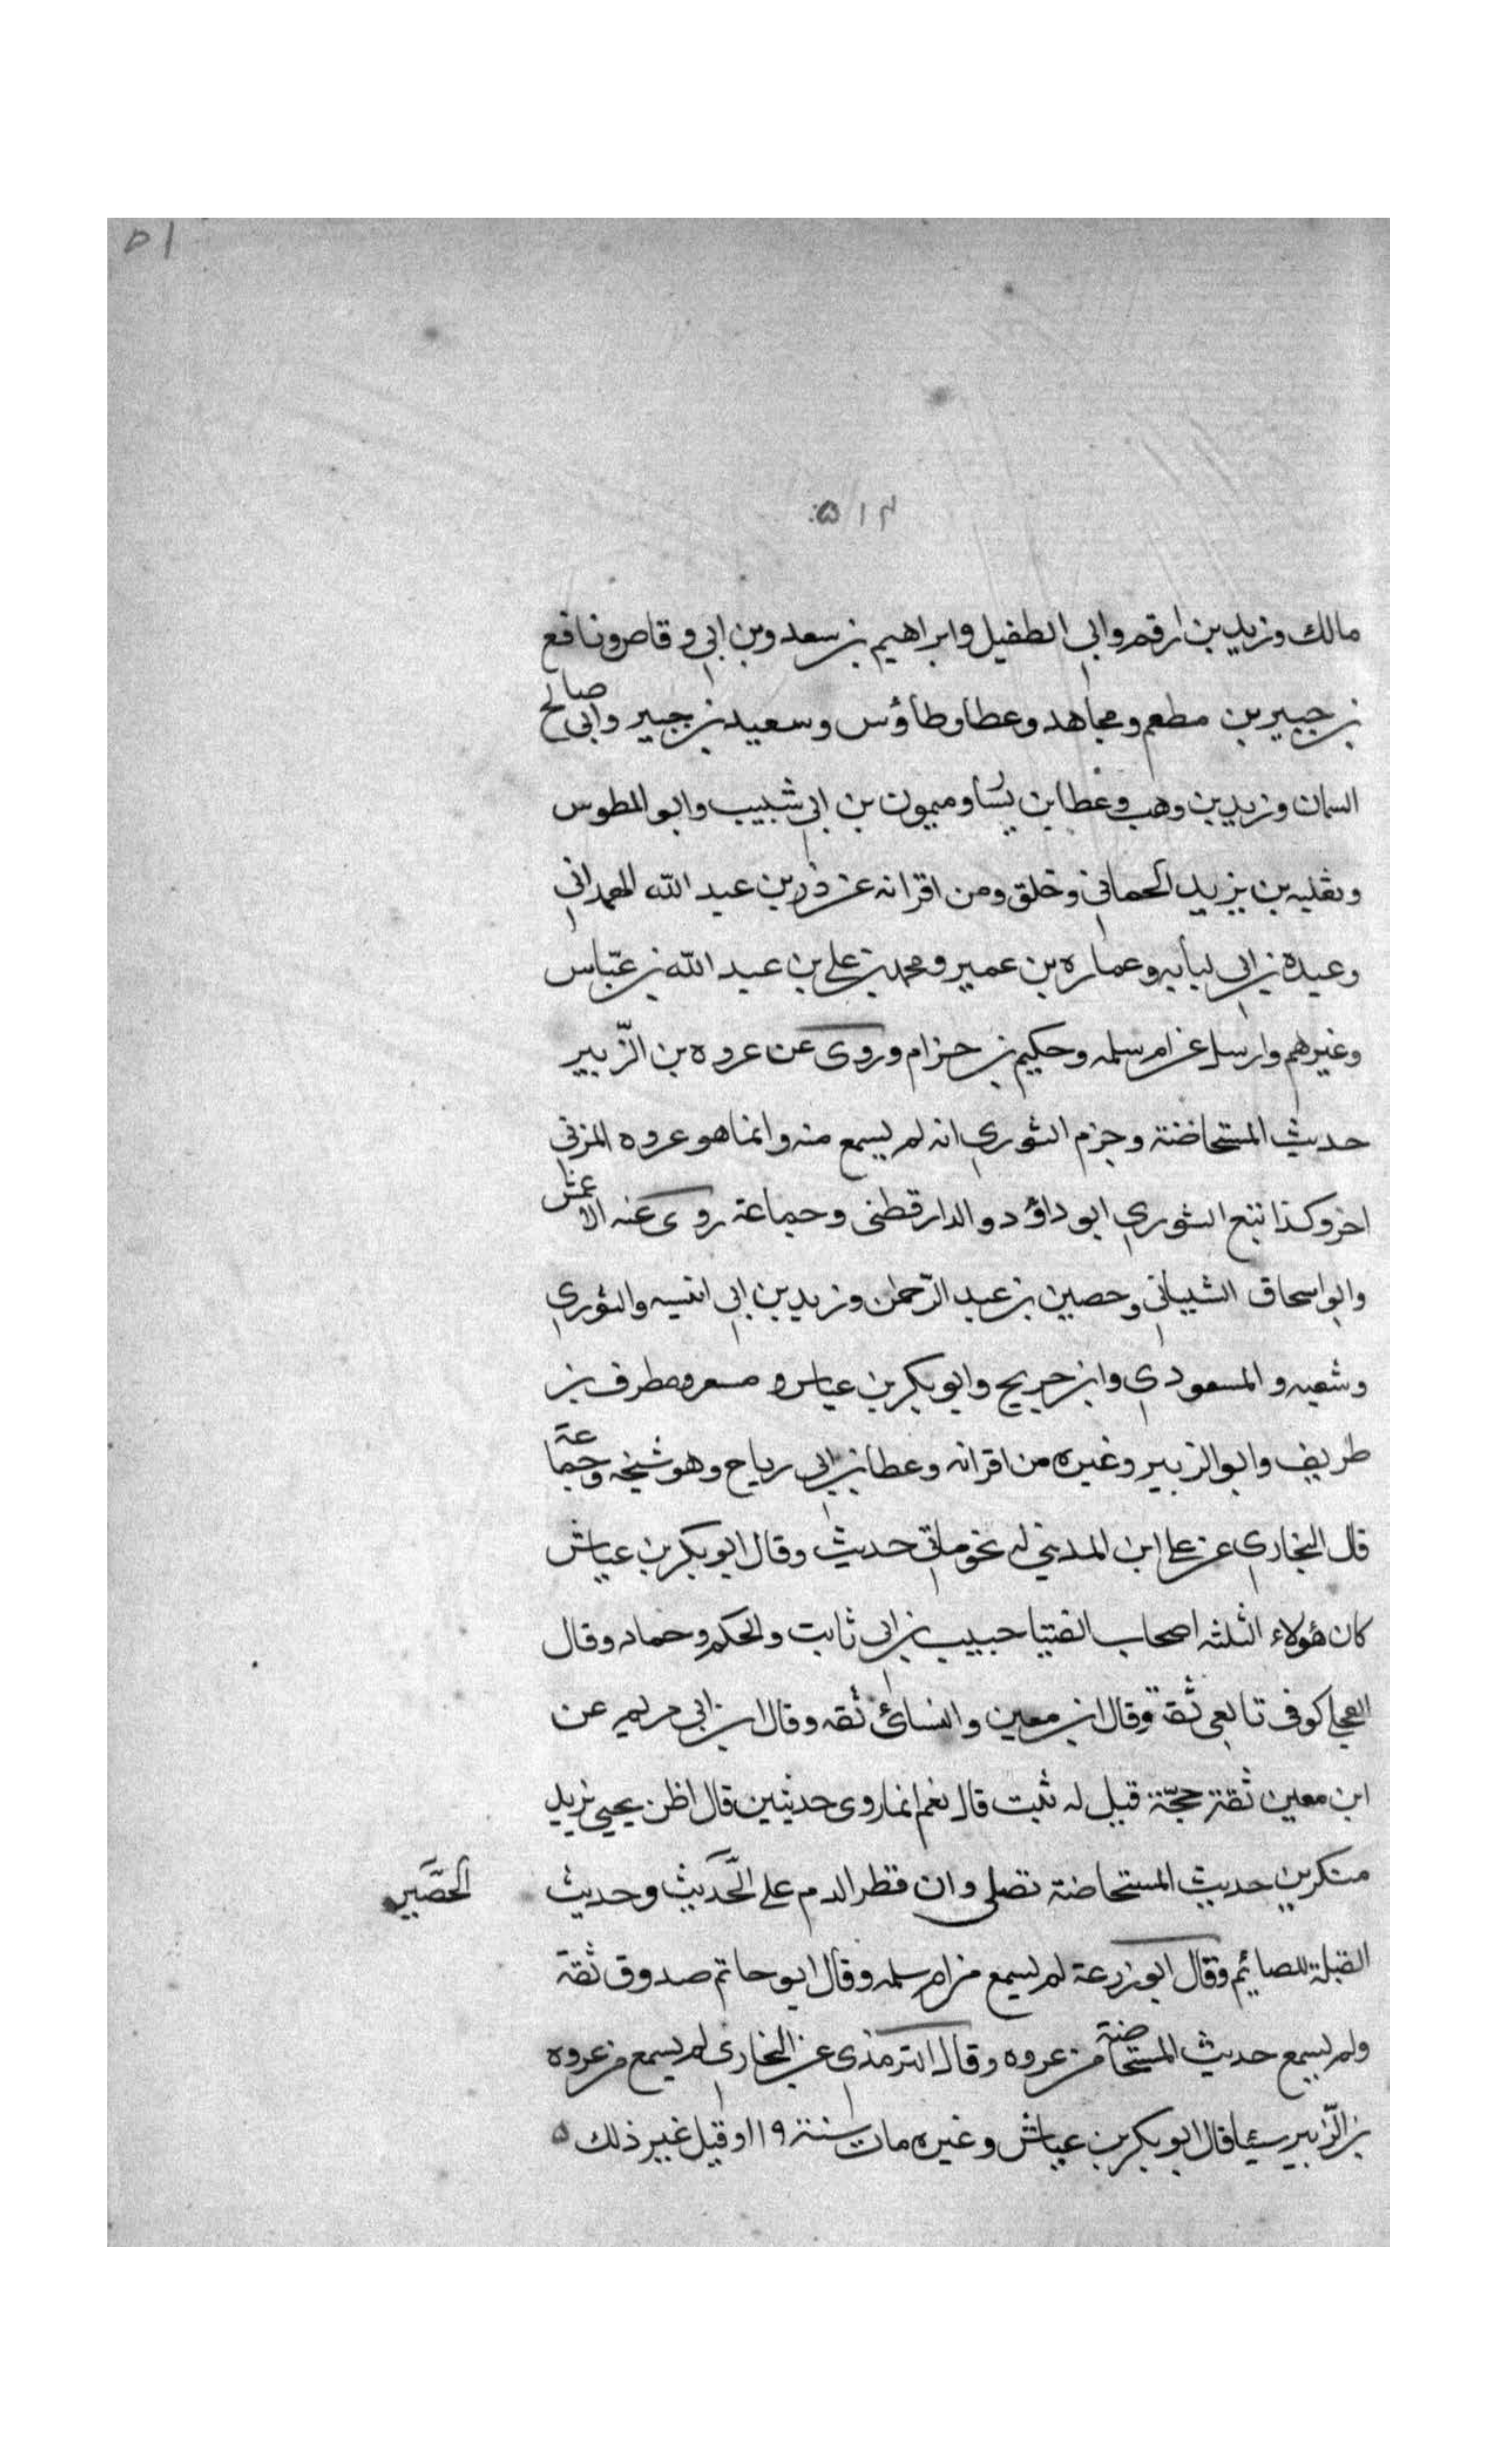 ٥١
مالك وزيد بن ارقم وابي الطفيل وابراهيم بن سعد وبن ابي وقاص ونافع
بن جبير بن مطعم ومجاهد وعطا وطاؤس وسعيد بن جبير وابي صالح
السمان وزيد بن وهب وعطا بن يسا وميمون بن ابي شبيب وابو المطوس
وثعلبه بن يزيد الحماني وخلق ومن اقرانه عن ذر بن عبد الله الهمداني
وعبدة بن ابي لبابه وعماره بن عمير ومحمد بن علي بن عبد الله بن عبّاس
وغيرهم وارسل عن ام سلمه وحكيم بن حزام وروى عن عروه بن الزّبير
حديث المستحاضة وجزم الثوري انه لم يسمع منه وانما هو عروه المزني
اخر وكذا تبع الثوري ابو داؤد والدارقطنى وجماعة روى عنه الاعمش
وابو اسحاق الشيباني وحصين بن عبد الرّحمن وزيد بن ابي انيسه والثوري
وشعبه والمسعودي وابن جريج وابو بكر بن عياس و مسعر ومطرف بن
طريف وابو الزبير وغيره من اقرانه وعطا بن ابي رباح وهو شيخه وجماعة
قال البخاري عن علي ابن المديني له نحو مأتي حديث وقال ابو بكر بن عياش
كان هؤلاء الثلثه اصحاب الفتيا حبيب بن ابي ثابت والحكم وحماد وقال
العجلي كوفى تابعي ثقة وقال ابن معين والنسائ ثقه وقال ابن ابي مريم عن
ابن معين ثقة حجّة قيل له ثبت قال نعم انما روى حديثين قال اظن يحيى يريد
منكرين حديث المستحاضة تصلى وان قطر الدم على الحديث وحديث
الحصير
القبلة للصائم وقال ابو زرعة لم يسمع من ام سلمه وقال ابو حاتم صدوق ثقة
ولم يسمع حديث المستحاضة من عروه وقال الترمذى عن البخاري لم يسمع من عروه
بن الزّبير سيئا قال ابو بكر بن عياش وغيره مات سنة ١١٩ وقيل غير ذلك ٥